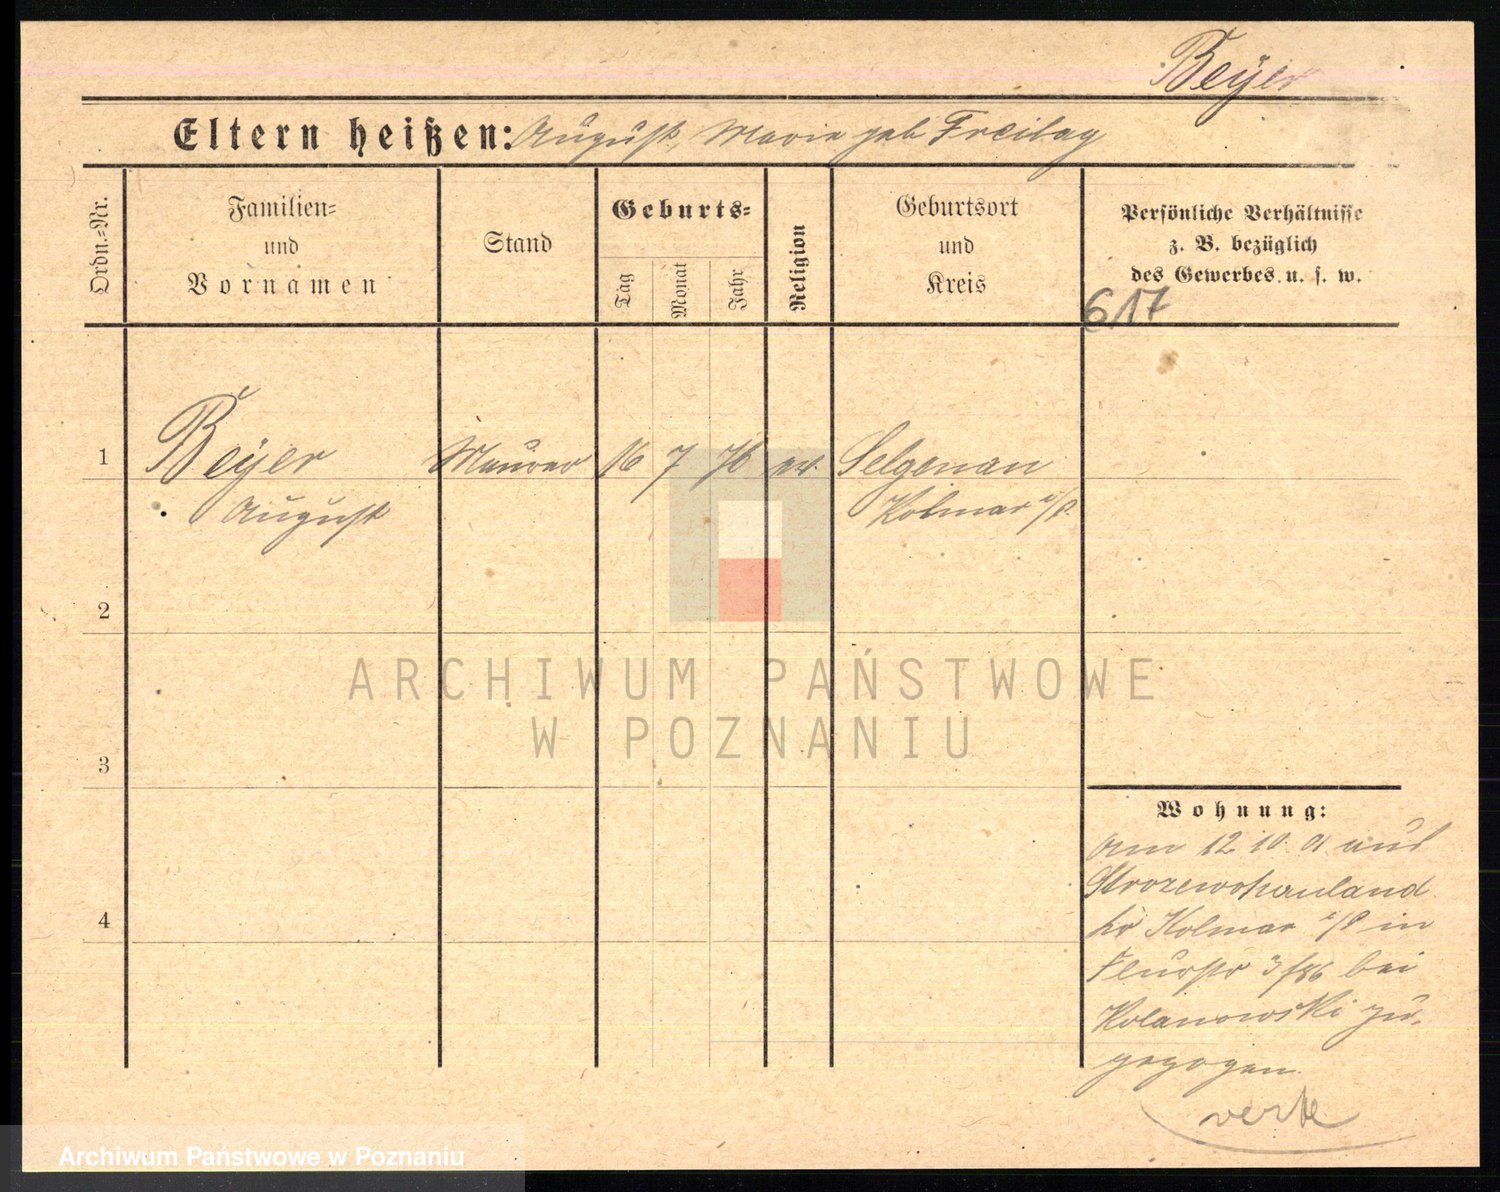 Beÿer
Eltern heißen: August, Marie geb Freitag
Ordn.-Nr.
Familien-
und
Vornamen
Stand
Geburts-
Tag
Monat
Jahr
Religion
Geburtsort
und
Kreis
Persönliche Verhältnisse
z. B. bezüglich
des Gewerbes u. s. w.
617
1
Beÿer
August
Maurer
16
7
76
ev.
Selgenau
Kolmar i/P.
2
3
4
ARCHIWUM PAŃSTWOWE
W POZNANIU
Wohnung:
Am 12 10 01 aus
Strozewohauland
Kr Kolmar i/P in
Flurstr 3/86 bei
Kolanowski zu-
gezogen.
Archiwum Państwowe w Poznaniu